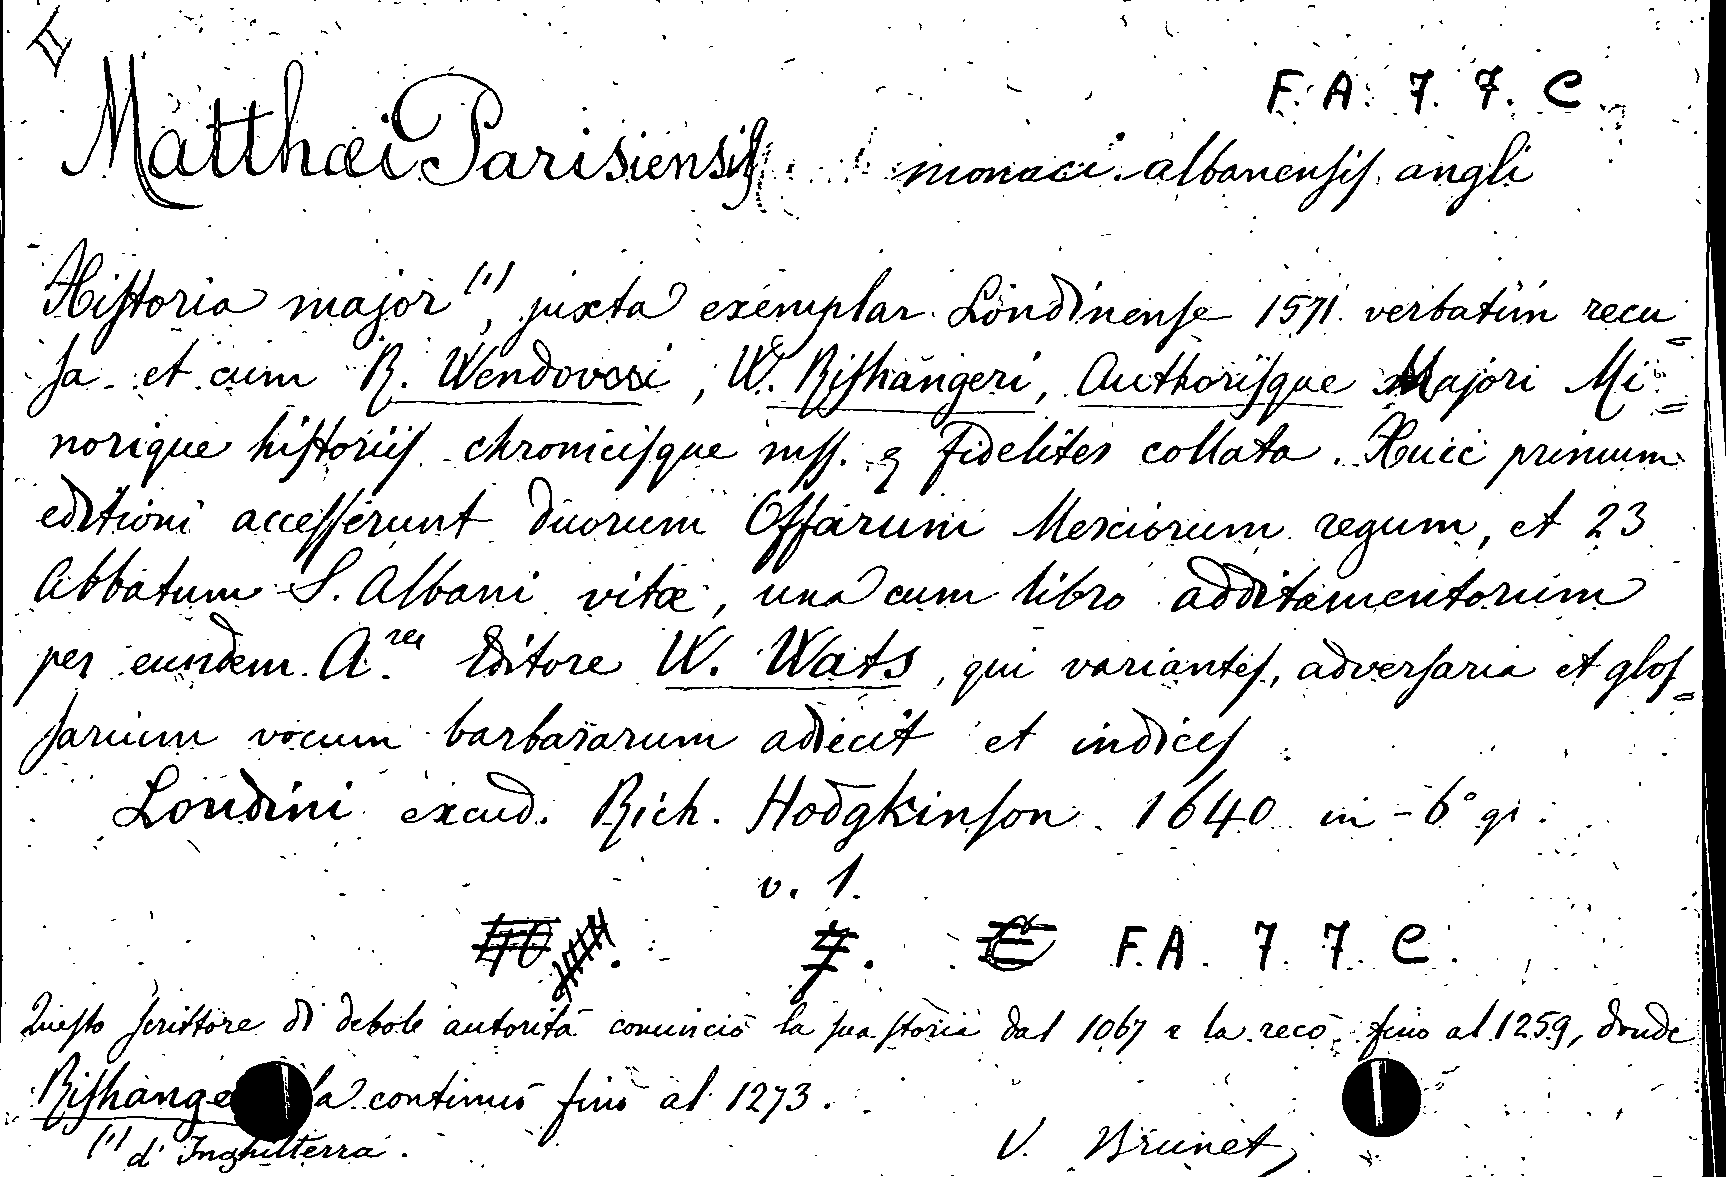 F. A. 7. 7. C
Matthæi Parisiensis monaci albanensis angli
Historia major (1), juxta exemplar Londinense 1571 verbatim recu=
sa et cum R. Wendoveri, W. Rishangeri, Authorisque Majori Mi=
norique historiis chronicisque mss. fideliter collata. Huic primum
editioni accesserunt duorum Offarum Merciorum regum, et 23
Abbatum S. Albani vitæ, una cum libro additamentorum
per eundem A.rem Editore W. Wats, qui variantes, adversaria et glos=
sarium vocum barbararum adiecit et indices
Londini excud. Rich. Hodgkinson 1640 in-6° gr.
v. 1.
7. C F. A. 7 7 C.
Questo scrittore di debole autorità cominciò la sua storia dal 1067 e la recò fino al 1259, donde
Rishange la continuò fino al 1273.
(1) d'Inghilterra. V. Brunet,